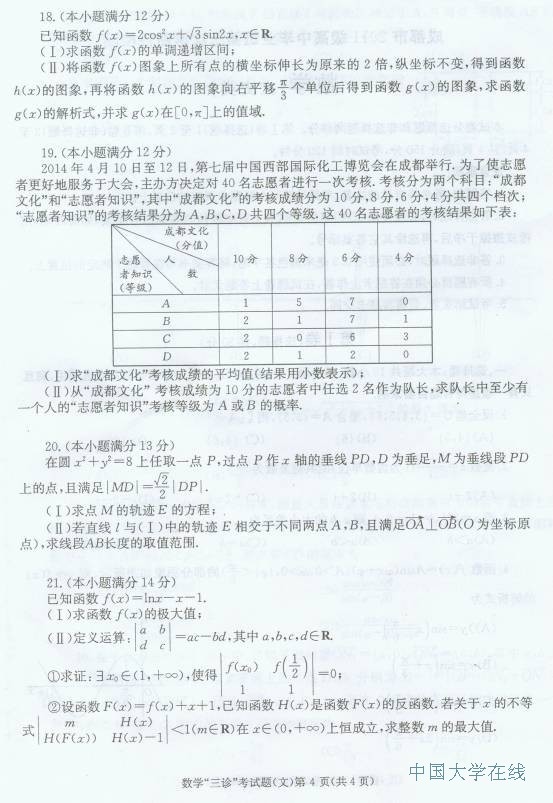 18.(本小题满分12分)
已知函数 f(x)=2cos²x+√3 sin2x,x∈R.
(Ⅰ)求函数 f(x)的单调递增区间;
(Ⅱ)将函数 f(x)图象上所有点的横坐标伸长为原来的 2 倍,纵坐标不变,得到函数
h(x)的图象,再将函数 h(x)的图象向右平移 π/3 个单位后得到函数 g(x)的图象,求函数
g(x)的解析式,并求 g(x)在[0,π]上的值域.
19.(本小题满分12分)
2014 年 4 月 10 日至 12 日,第七届中国西部国际化工博览会在成都举行.为了使志愿
者更好地服务于大会,主办方决定对 40 名志愿者进行一次考核.考核分为两个科目:“成都
文化”和“志愿者知识”,其中“成都文化”的考核成绩分为 10 分,8 分,6 分,4 分共四个档次;
“志愿者知识”的考核结果分为 A,B,C,D 共四个等级.这 40 名志愿者的考核结果如下表:
成都文化
(分值)
人
数
志愿
者知识
(等级)
10分 8分 6分 4分
A 1 5 7 0
B 2 1 7 1
C 2 0 6 3
D 2 1 2 0
(Ⅰ)求“成都文化”考核成绩的平均值(结果用小数表示);
(Ⅱ)从“成都文化” 考核成绩为 10 分的志愿者中任选 2 名作为队长,求队长中至少有
一个人的“志愿者知识”考核等级为 A 或 B 的概率.
20.(本小题满分13分)
在圆 x²+y²=8 上任取一点 P,过点 P 作 x 轴的垂线 PD,D 为垂足,M 为垂线段 PD
上的点,且满足|MD|=√2/2|DP|.
(Ⅰ)求点 M 的轨迹 E 的方程;
(Ⅱ)若直线 l 与(Ⅰ)中的轨迹 E 相交于不同两点 A,B,且满足OA⊥OB(O 为坐标原
点),求线段AB长度的取值范围.
21.(本小题满分14分)
已知函数 f(x)=lnx-x-1.
(Ⅰ)求函数 f(x)的极大值;
(Ⅱ)定义运算:|a b; d c|=ac-bd,其中 a,b,c,d∈R.
①求证:∃x₀∈(1,+∞),使得|f(x₀) f(1/2); 1 1|=0;
②设函数 F(x)=f(x)+x+1,已知函数 H(x)是函数 F(x)的反函数.若关于 x 的不等
式|m H(x); H(F(x)) H(x)-1|<1(m∈R)在 x∈(0,+∞)上恒成立,求整数 m 的最大值.
数学“三诊”考试题(文)第 4 页(共 4 页)
中国大学在线